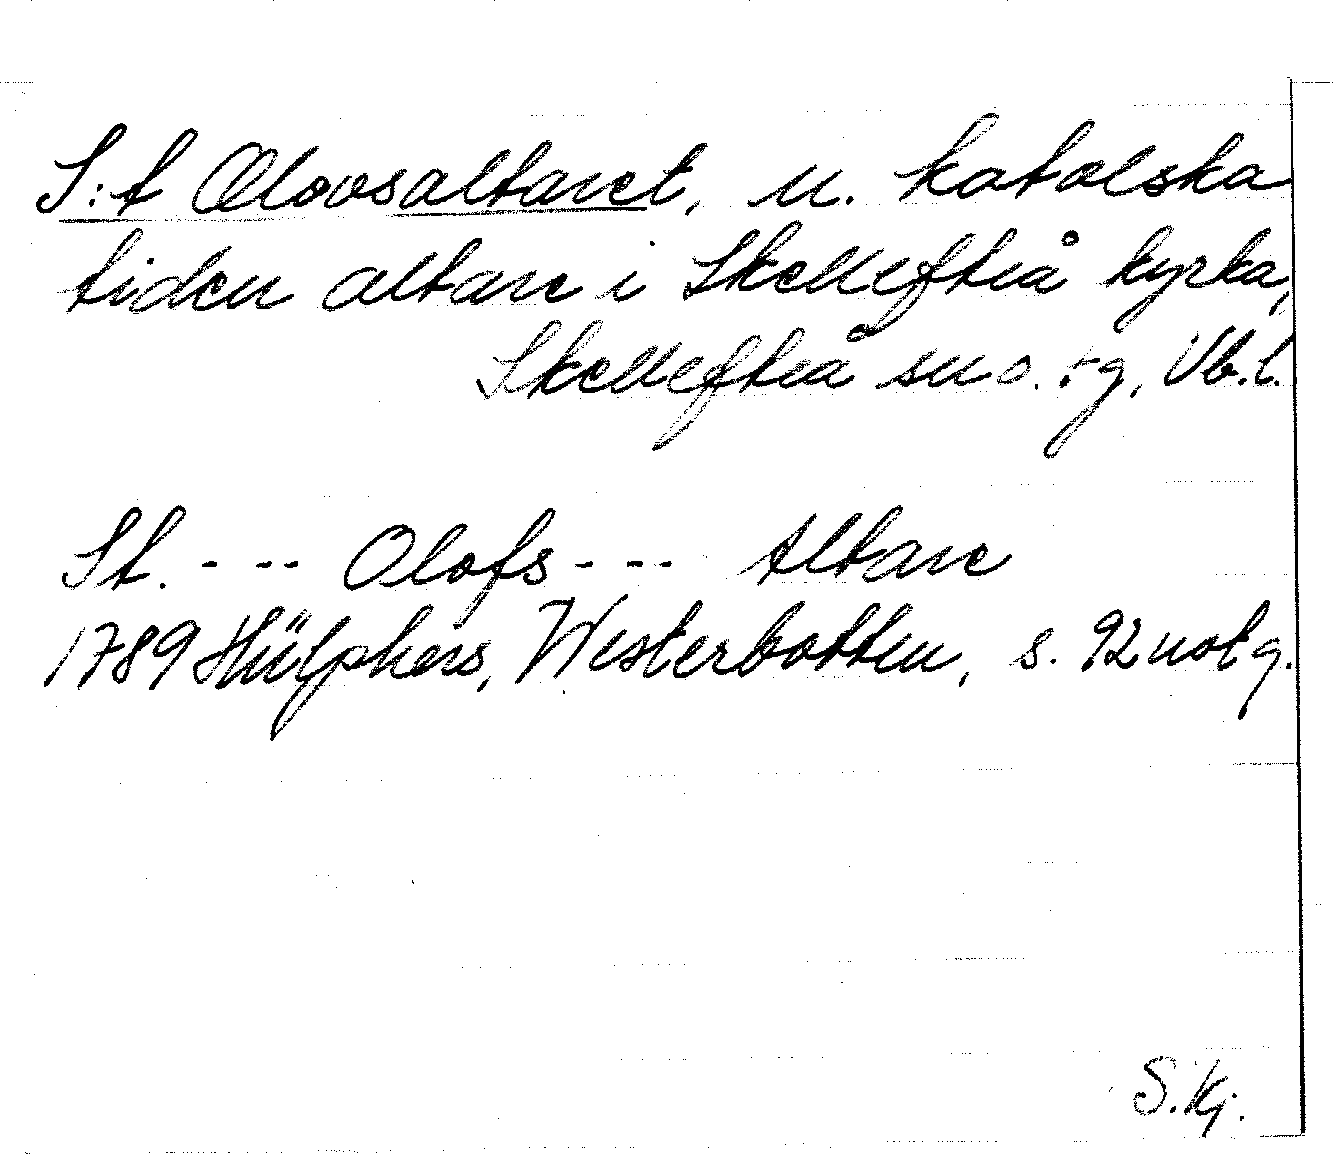 S:t Olovsaltaret, u. katolska
tiden altare i Skellefteå kyrka,
Skellefteå sn o. tg, Vb.l.
St. --- Olofs --- Altare
1789 Hülphers, Westerbotten, s. 92 not q.
S.Kj.